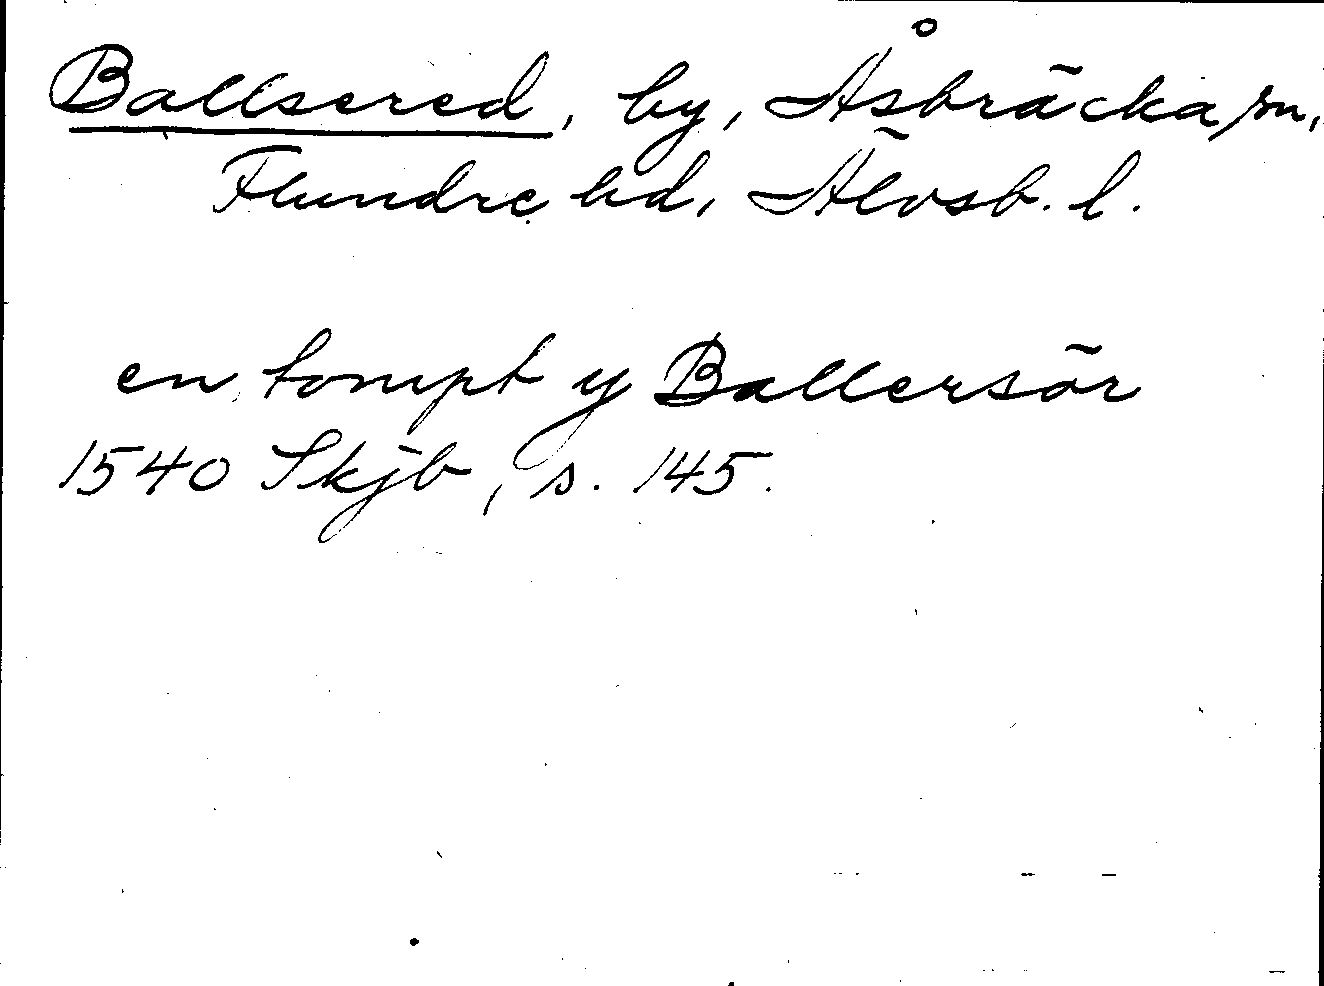 Ballsered, by, Åsbräcka sn,
Flundre hd, Älvsb. l.
en tompt y Ballersör
1540 Skjb, s. 145.